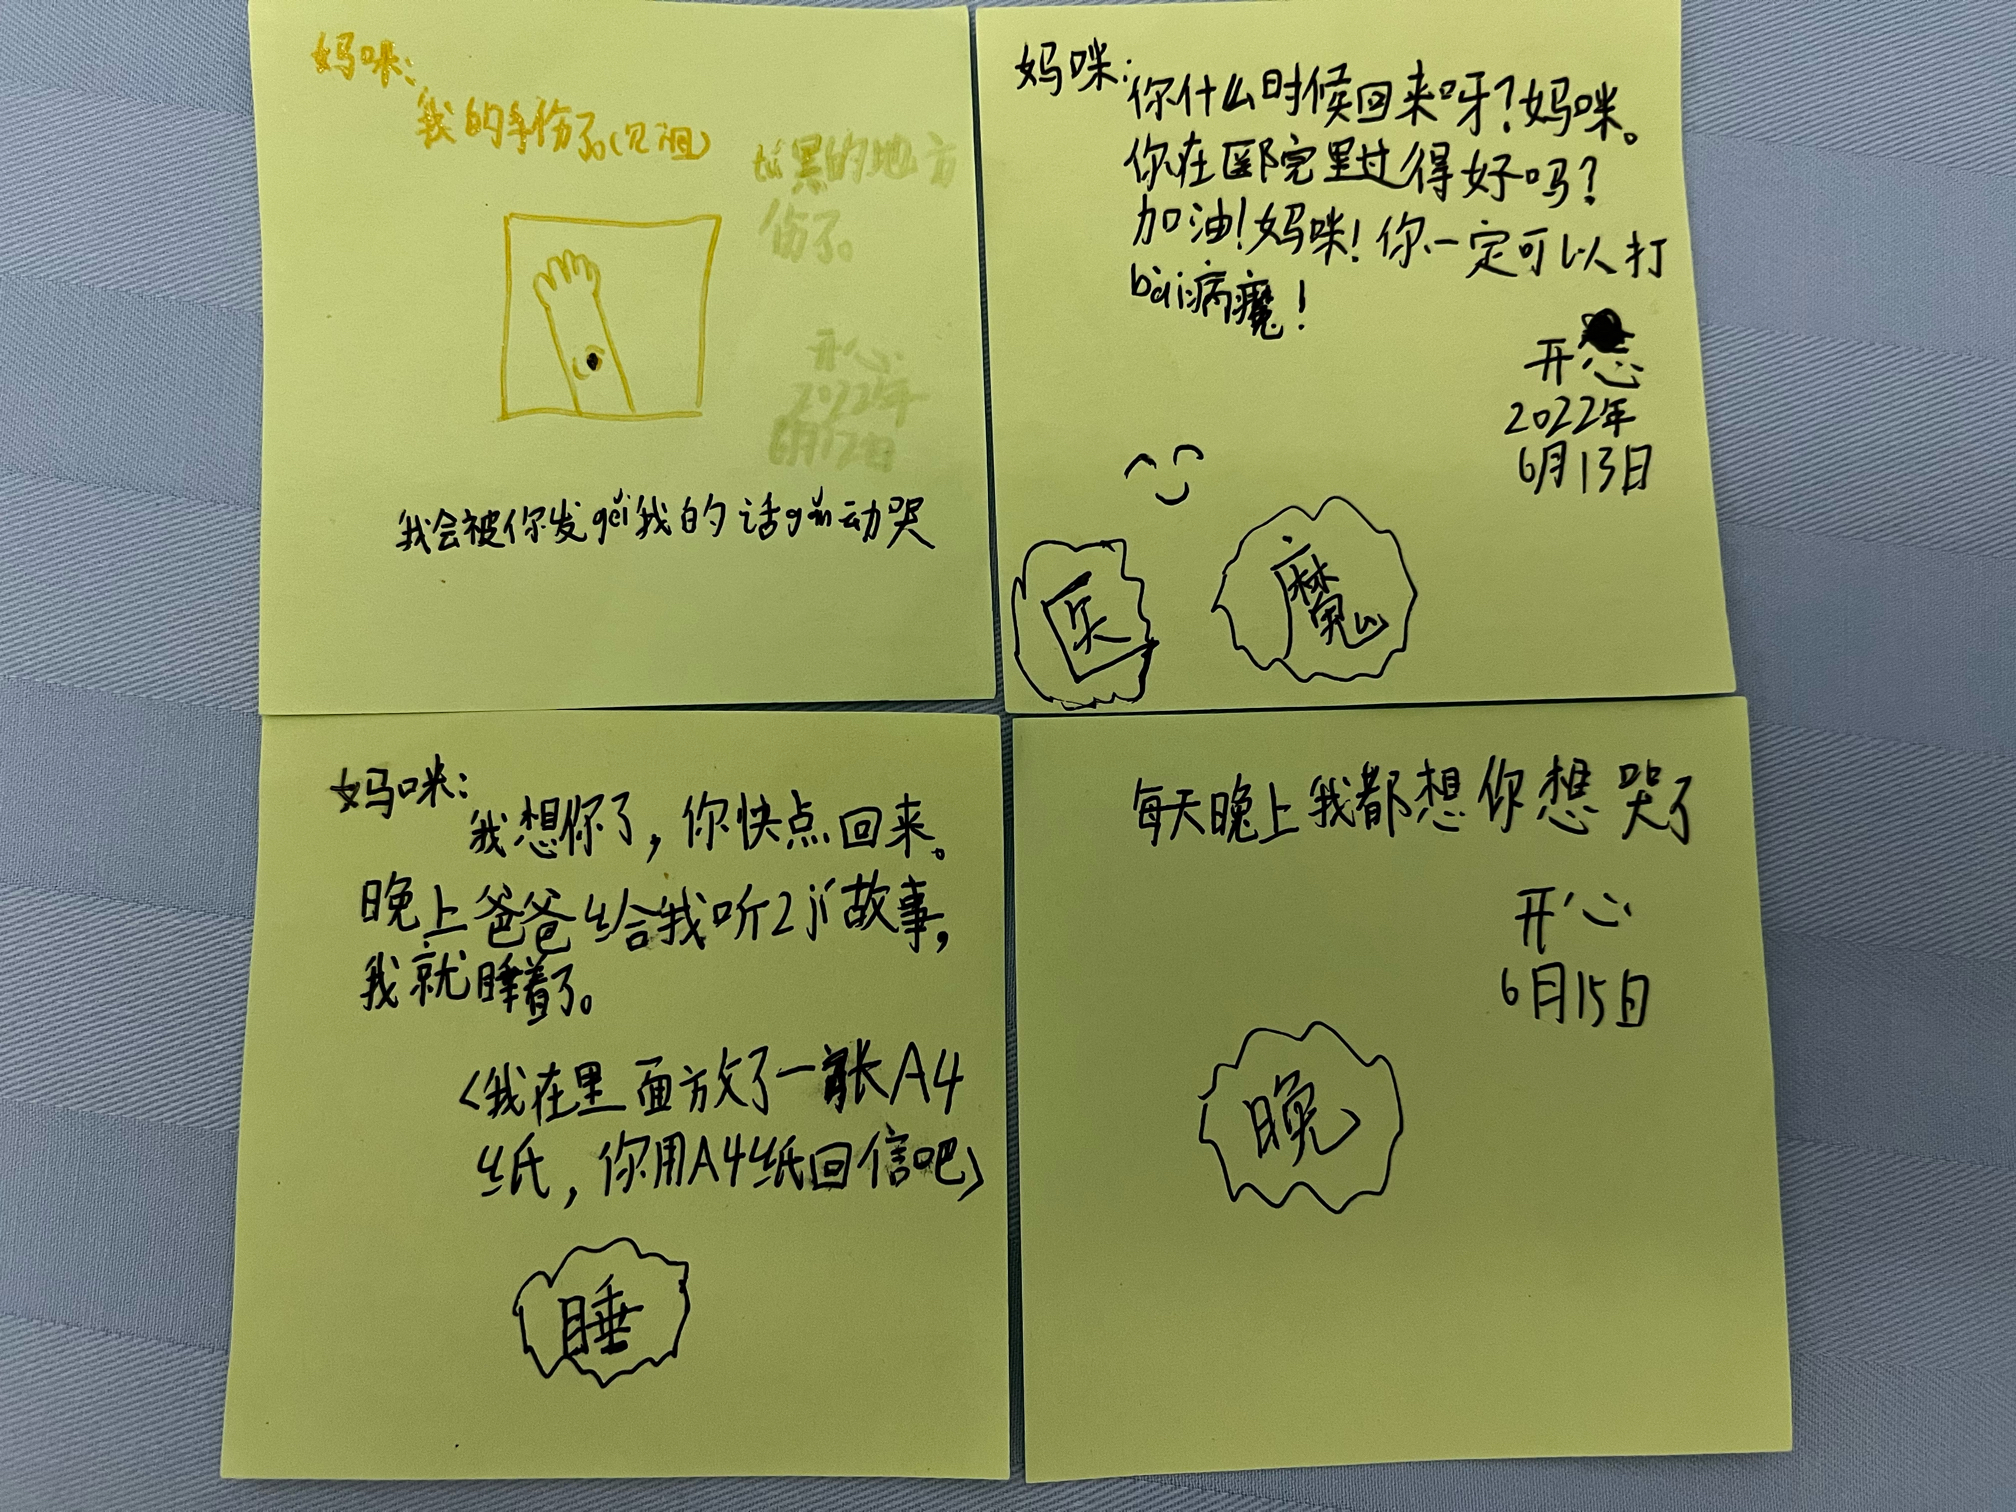 妈咪:
我的手伤了。(见图)
tú黑的地方
伤了。
开心
2022年
6月12日
我会被你发gěi我的话gǎn动哭
妈咪:
你什么时候回来呀?妈咪。
你在医院里过得好吗?
加油!妈咪!你一定可以打
bài病魔!
开心
2022年
6月13日
医
魔
妈咪:
我想你了,你快点回来。
晚上爸爸给我听2jí故事,
我就睡着了。
<我在里面放了一张A4
纸,你用A4纸回信吧>
睡
每天晚上我都想你想哭了
开心
6月15日
晚